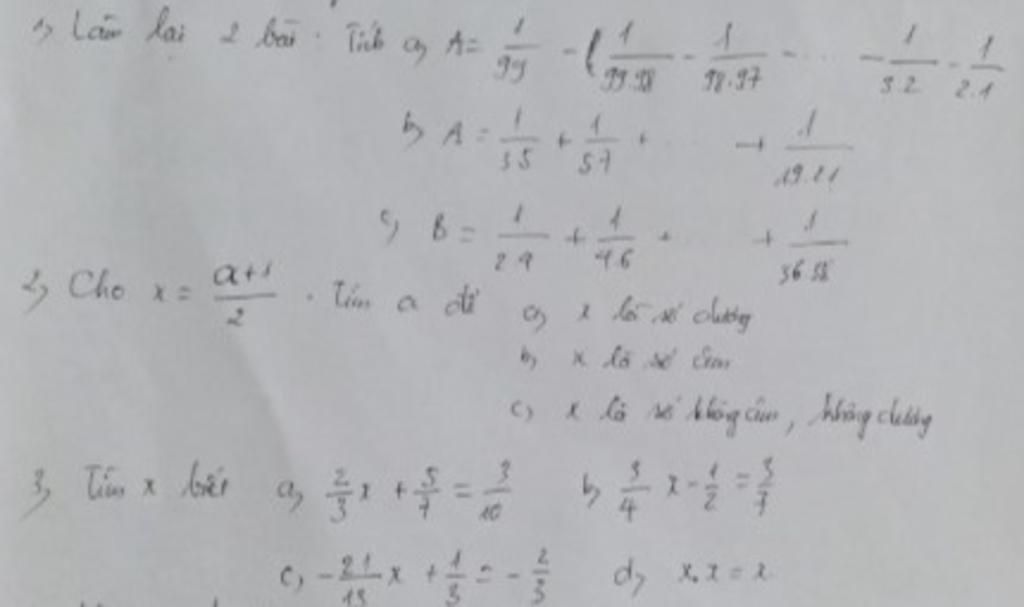 1) Làm lại 2 bài. Tính a) A = 1/99 - ( 1/99.98 - 1/98.97 - ... - 1/3.2 - 1/2.1
b) A = 1/3.5 + 1/5.7 + ... + 1/19.21
c) B = 1/2.4 + 1/4.6 + ... + 1/36.38
2) Cho x = a+1/2 . Tìm a để a) x là số dương
b) x là số âm
c) x là số không âm, không dương
3) Tìm x biết a) 2/3 x + 5/7 = 3/10 b) 3/4 x - 1/2 = 3/7
c) - 21/13 x + 1/3 = - 2/3 d) x.x = x